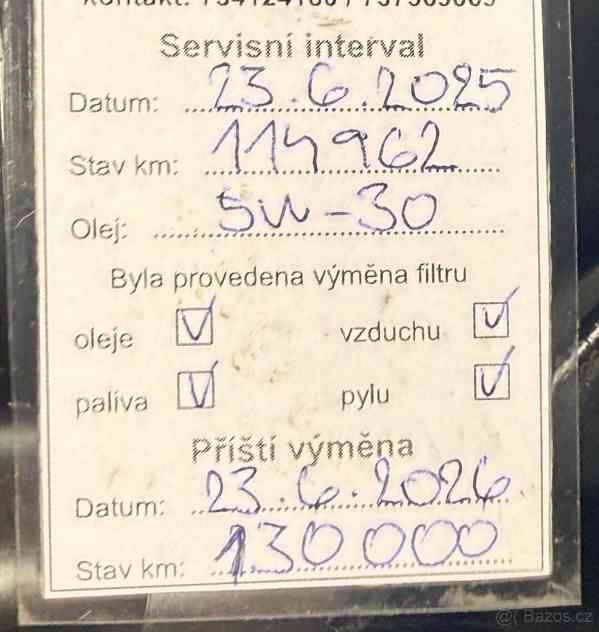 Servisní interval
Datum: 23.6.2025
Stav km: 114962
Olej: 5W-30
Byla provedena výměna filtru
oleje ☑ vzduchu ☑
paliva ☑ pylu ☑
Příští výměna
Datum: 23.6.2026
Stav km: 130000
@( Bazos.cz